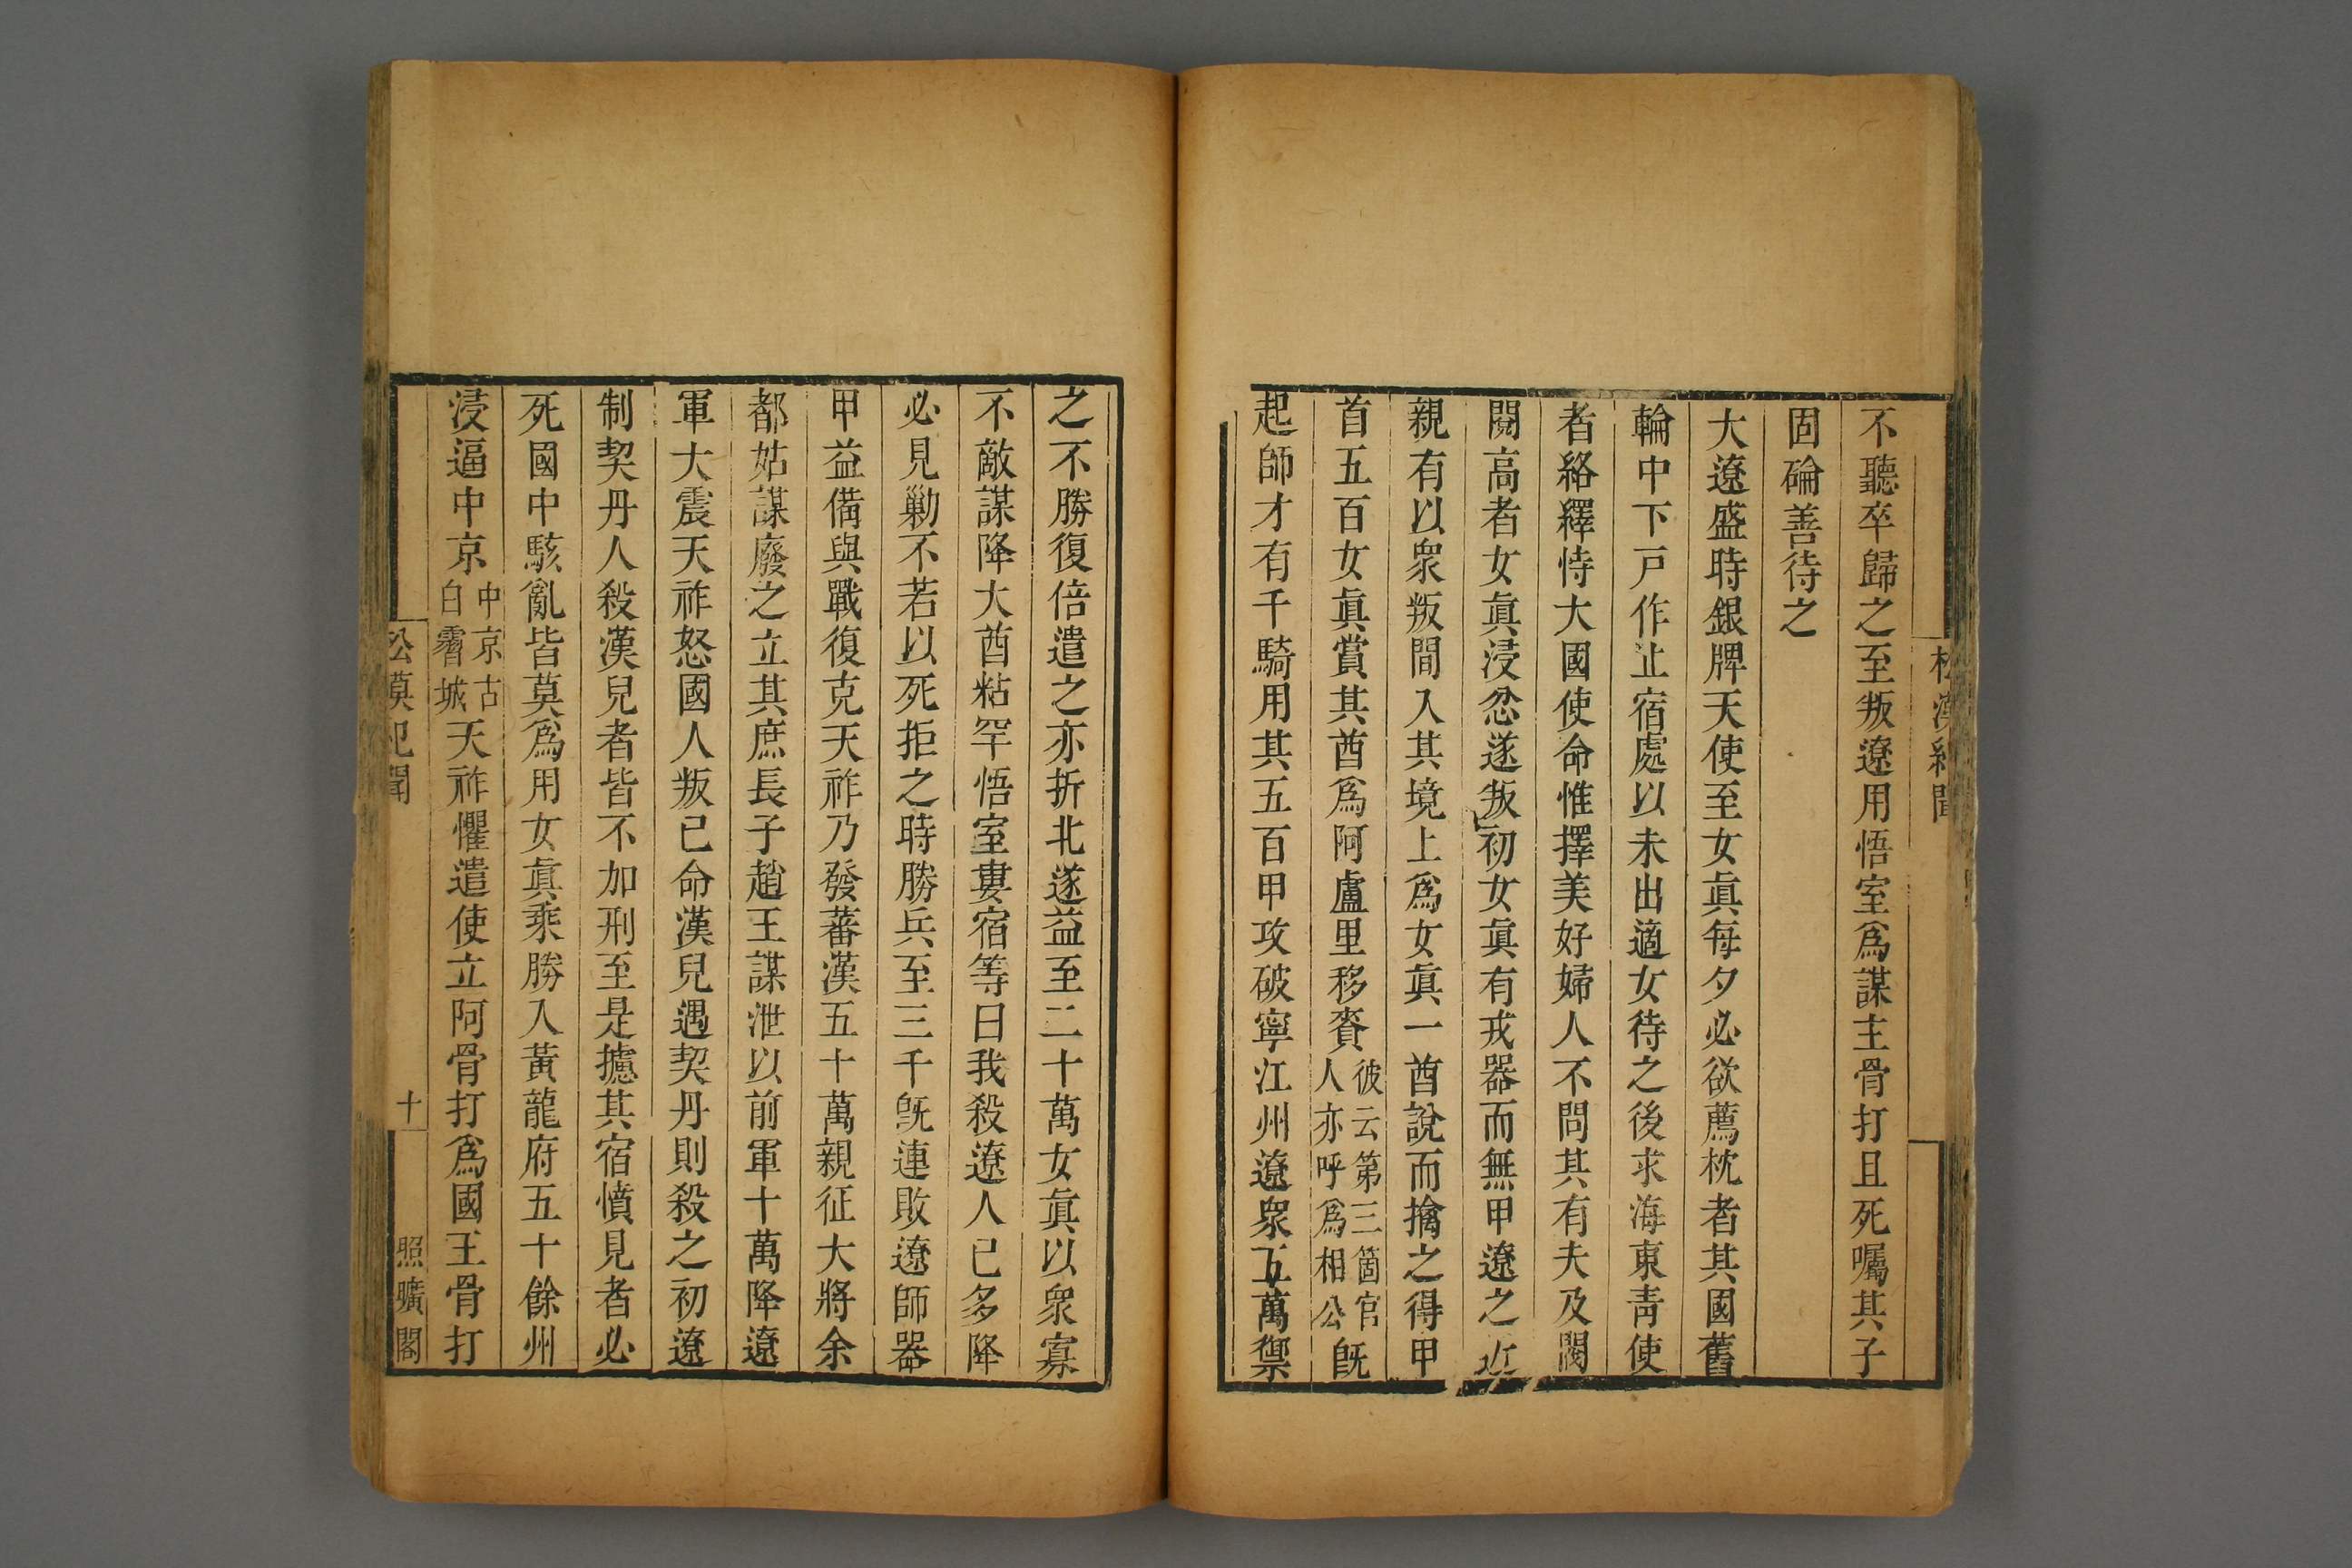 不聽卒歸之至叛遼用悟室爲謀主骨打且死囑其子
固碖善待之
大遼盛時銀牌天使至女眞每夕必欲薦枕者其國舊
輪中下戸作止宿處以未出適女待之後求海東靑使
者絡繹恃大國使命惟擇美好婦人不問其有夫及閥
閱高者女眞浸忿遂叛初女眞有戎器而無甲遼之近
親有以衆叛間入其境上爲女眞一酋說而擒之得甲
首五百女眞賞其酋爲阿盧里移賚彼云第三箇官人亦呼爲相公旣
起師才有千騎用其五百甲攻破寧江州遼衆五萬禦
之不勝復倍遣之亦折北遂益至二十萬女眞以衆寡
不敵謀降大酋粘罕悟室婁宿等曰我殺遼人已多降
必見勦不若以死拒之時勝兵至三千旣連敗遼師器
甲益備與戰復克天祚乃發蕃漢五十萬親征大將余
都姑謀廢之立其庶長子趙王謀泄以前軍十萬降遼
軍大震天祚怒國人叛已命漢兒遇契丹則殺之初遼
制契丹人殺漢兒者皆不加刑至是攄其宿憤見者必
死國中駭亂皆莫爲用女眞乘勝入黃龍府五十餘州
浸逼中京中京古白霫城天祚懼遣使立阿骨打爲國王骨打
松漠紀聞
十
照曠閣